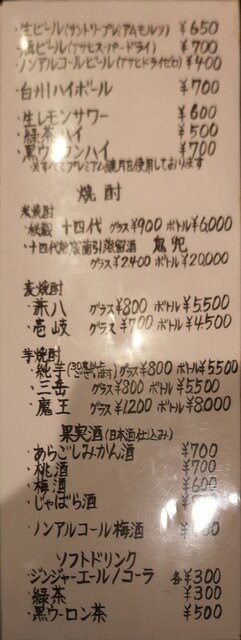 ・生ビール(サントリープレミアムモルツ) ¥650
ビール(アサヒスーパードライ) ¥700
・ノンアルコールビール(アサヒドライゼロ) ¥400
・白州ハイボール ¥700
・生レモンサワー ¥600
・緑茶ハイ ¥500
・黒ウーロンハイ ¥700
※すべてプレミアム鏡月を使用しております
焼酎
米焼酎
・秘蔵 十四代 グラス¥900 ボトル¥6,000
・十四代 蘭引蒸留酒 鬼兜
グラス¥2400 ボトル¥20,000
麦焼酎
・兼八 グラス¥800 ボトル¥5500
・壱岐 グラス¥700 ボトル¥4500
芋焼酎
・純芋 グラス¥800 ボトル¥5500
・三岳 グラス¥800 ボトル¥5500
・魔王 グラス¥1200 ボトル¥8000
果実酒(日本酒仕込み)
・あらごしみかん酒 ¥700
・桃酒 ¥700
・梅酒 ¥600
・じゃばら酒
・ノンアルコール梅酒
ソフトドリンク
・ジンジャーエール/コーラ 各¥300
・緑茶 ¥300
・黒ウーロン茶 ¥500